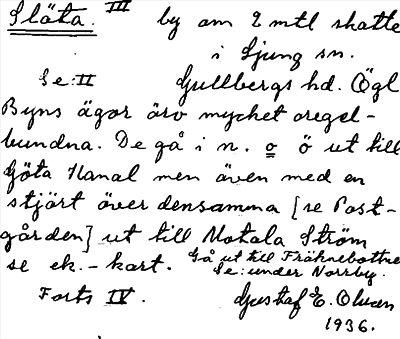 Släta. III by om 2 mtl skatte
i Ljung sn.
Se: II Gullbergs hd. Ögl
Byns ägor äro mycket oregel-
bundna. De gå i n. o ö ut till
Göta Kanal men även med en
stjärt över densamma [se Post-
gården] ut till Motala Ström
se ek.-kart. Gå ut till Fråknebottne
Se: under Norrby.
Forts IV. Gustaf E. Olsson
1936.